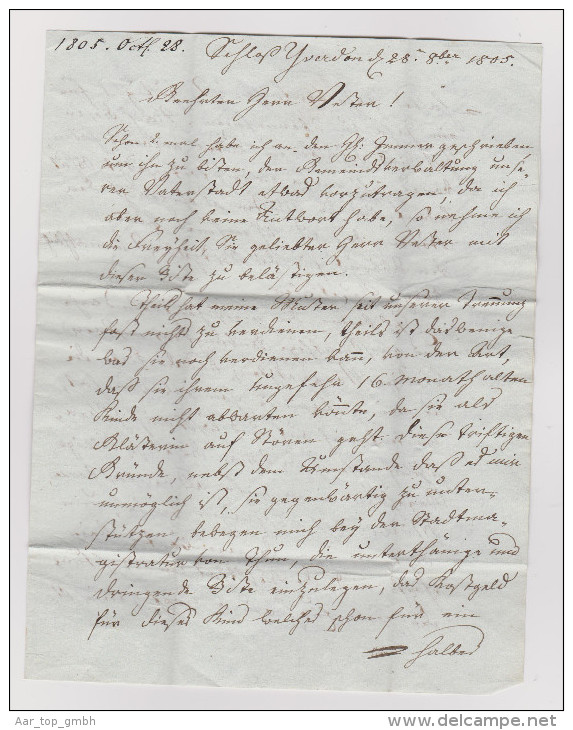 1805. Octb. 28.
Schloß Yverdon d. 28.n 8ber 1805.
Geehrter Herr Vetter!
Schon 2 mal habe ich an den Hh: geschrieben
um ihn zu bitten, der Gemeindsverwaltung unse-
rer Vaterstadt etwas vorzutragen, da ich
aber noch keine Antwort habe, so nehme ich
die Freyheit, Sie geliebter Herr Vetter mit
dieser Bitte zu belästigen.
Theils hat meine Mutter seit unserer Trennung
fast nichts zu verdienen, theils ist das wenige
was sie noch verdienen kann, von der Art,
daß sie ihrem ungefehr 16 Monath alten
Kinde nicht abwarten könnte, da sie als
Glätterin auf Stören geht. Diese triftigen
Gründe, nebst dem Umstande daß es mir
unmöglich ist, sie gegenwärtig zu unter-
stützen, bewegen mich bey der Stadtma-
gistratur von Thun, die unterthänige und
dringende Bitte einzulegen, das Kostgeld
für dieses Kind welches schon für ein
halbes
Aar_top_gmbh
www.delcampe.net